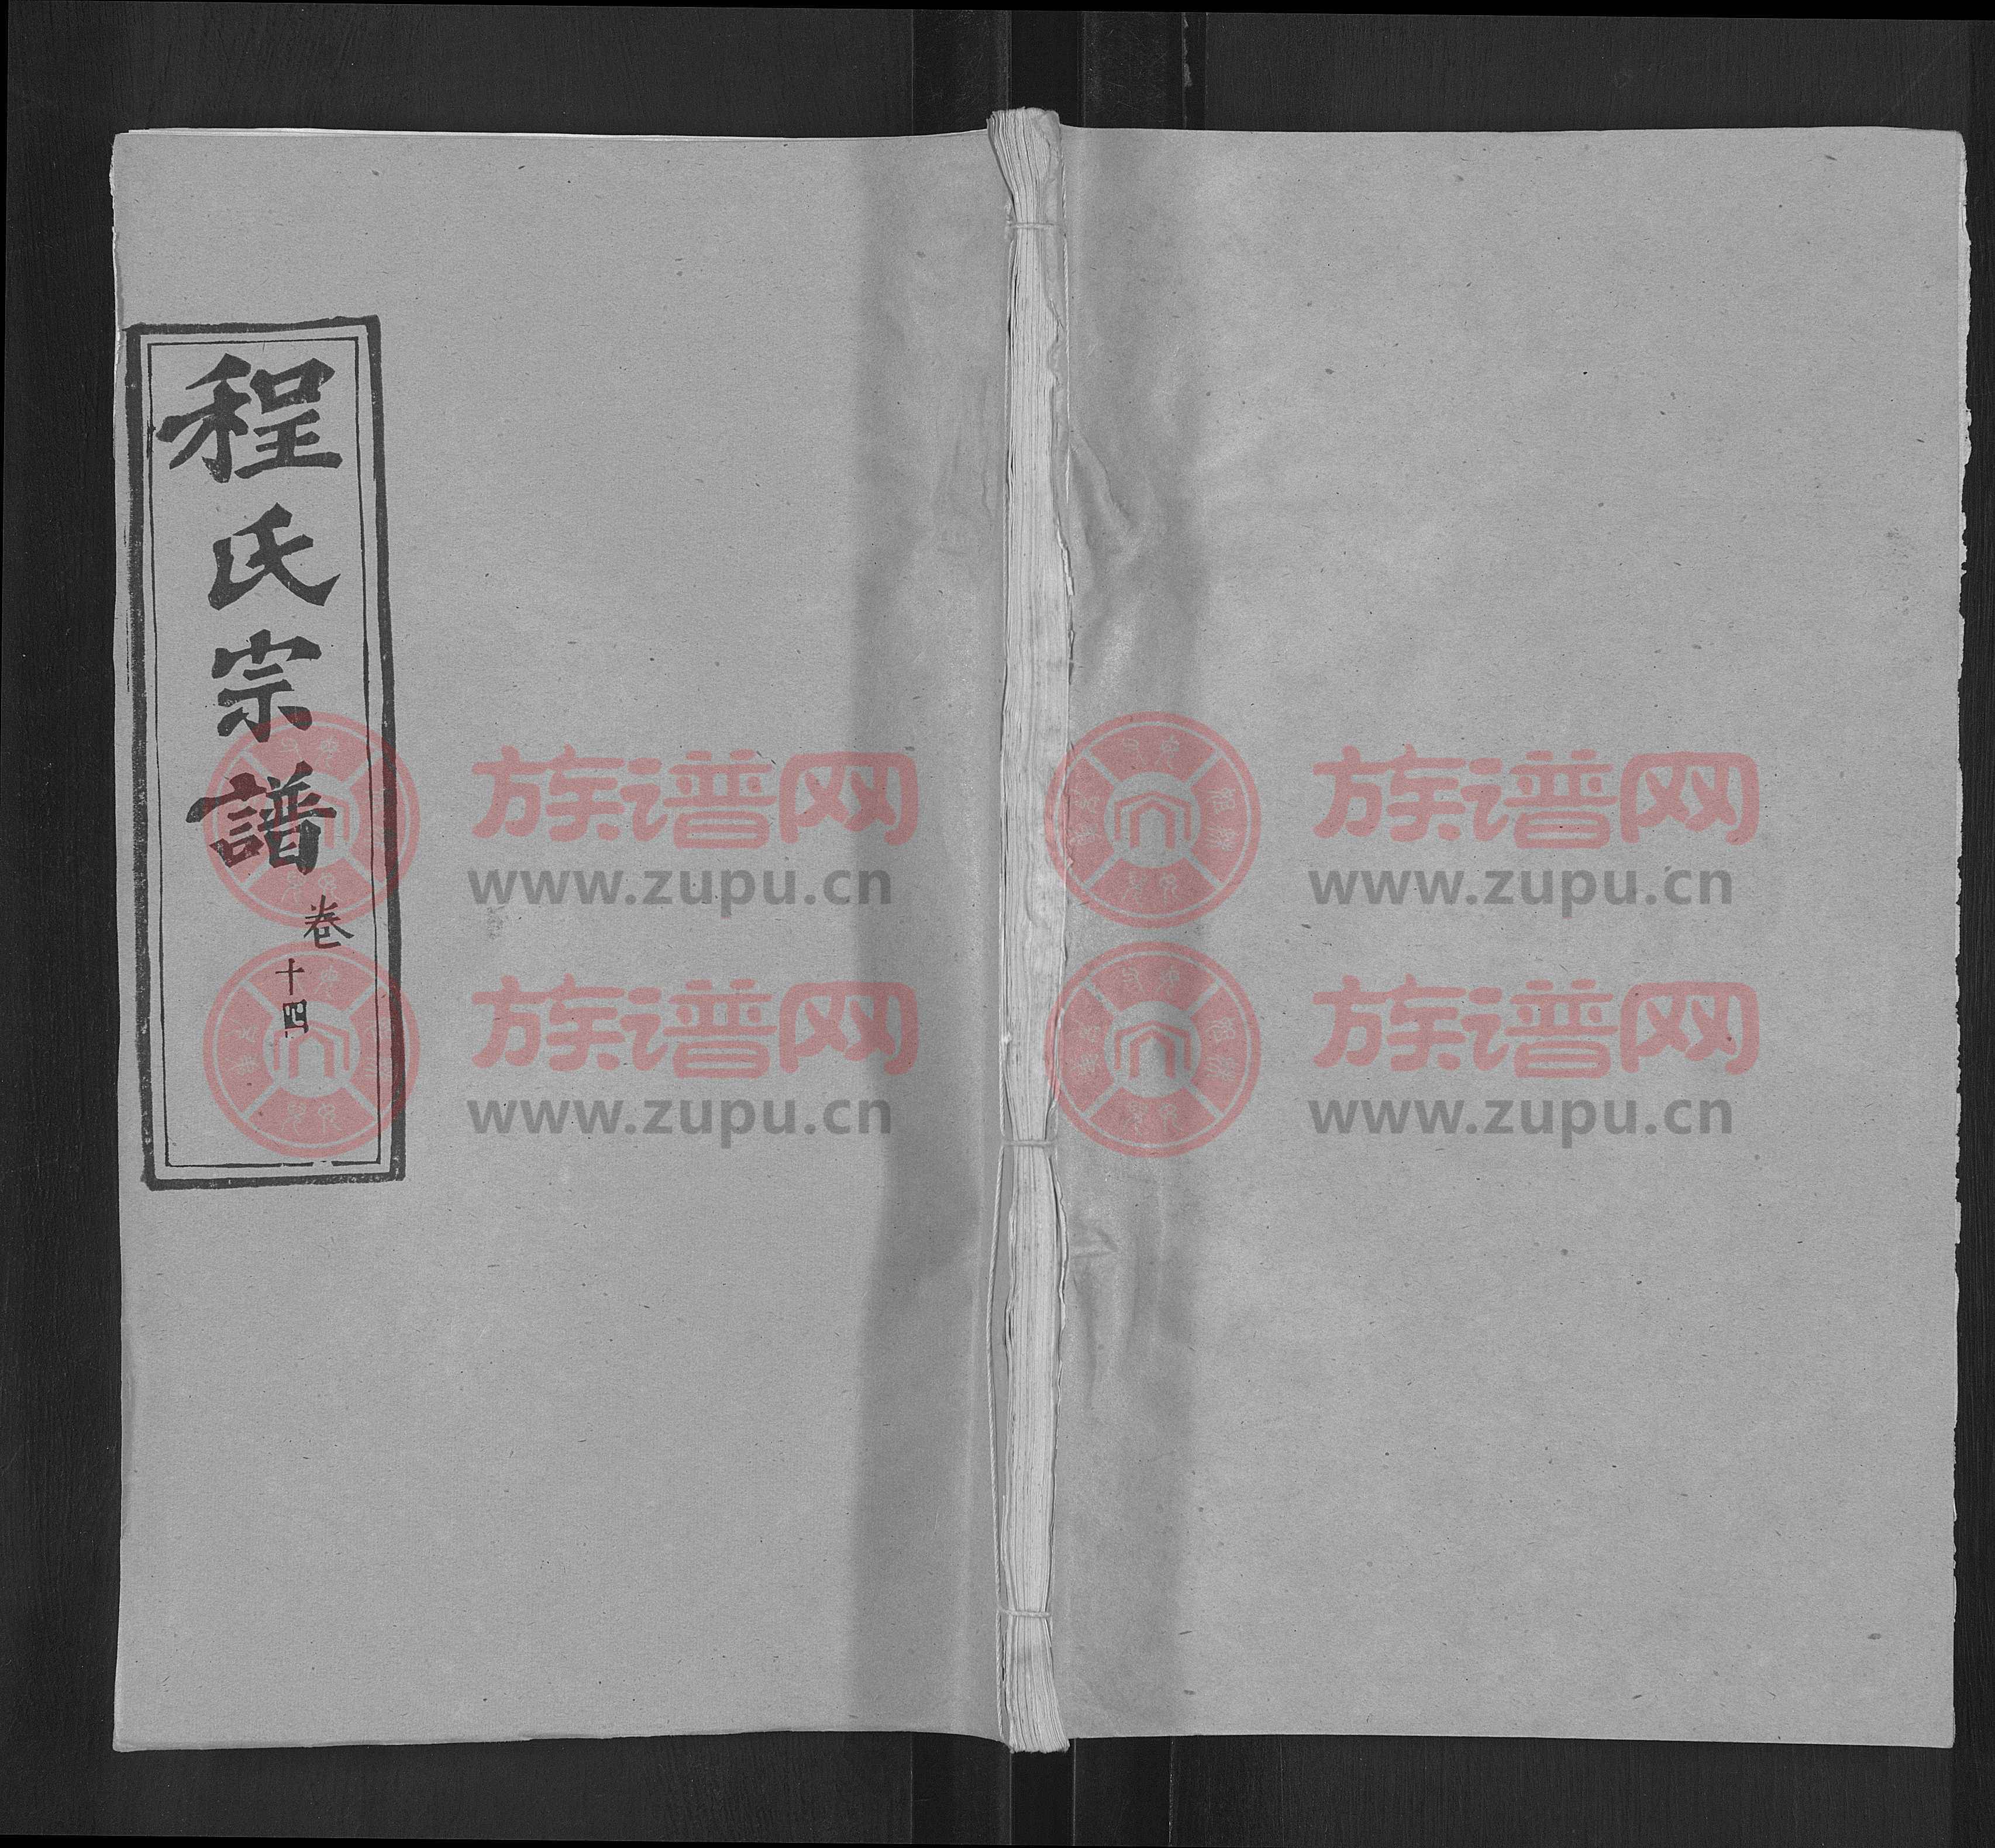 程氏宗譜
卷
十四
族谱网
www.zupu.cn
族谱网
www.zupu.cn
族谱网
www.zupu.cn
族谱网
www.zupu.cn